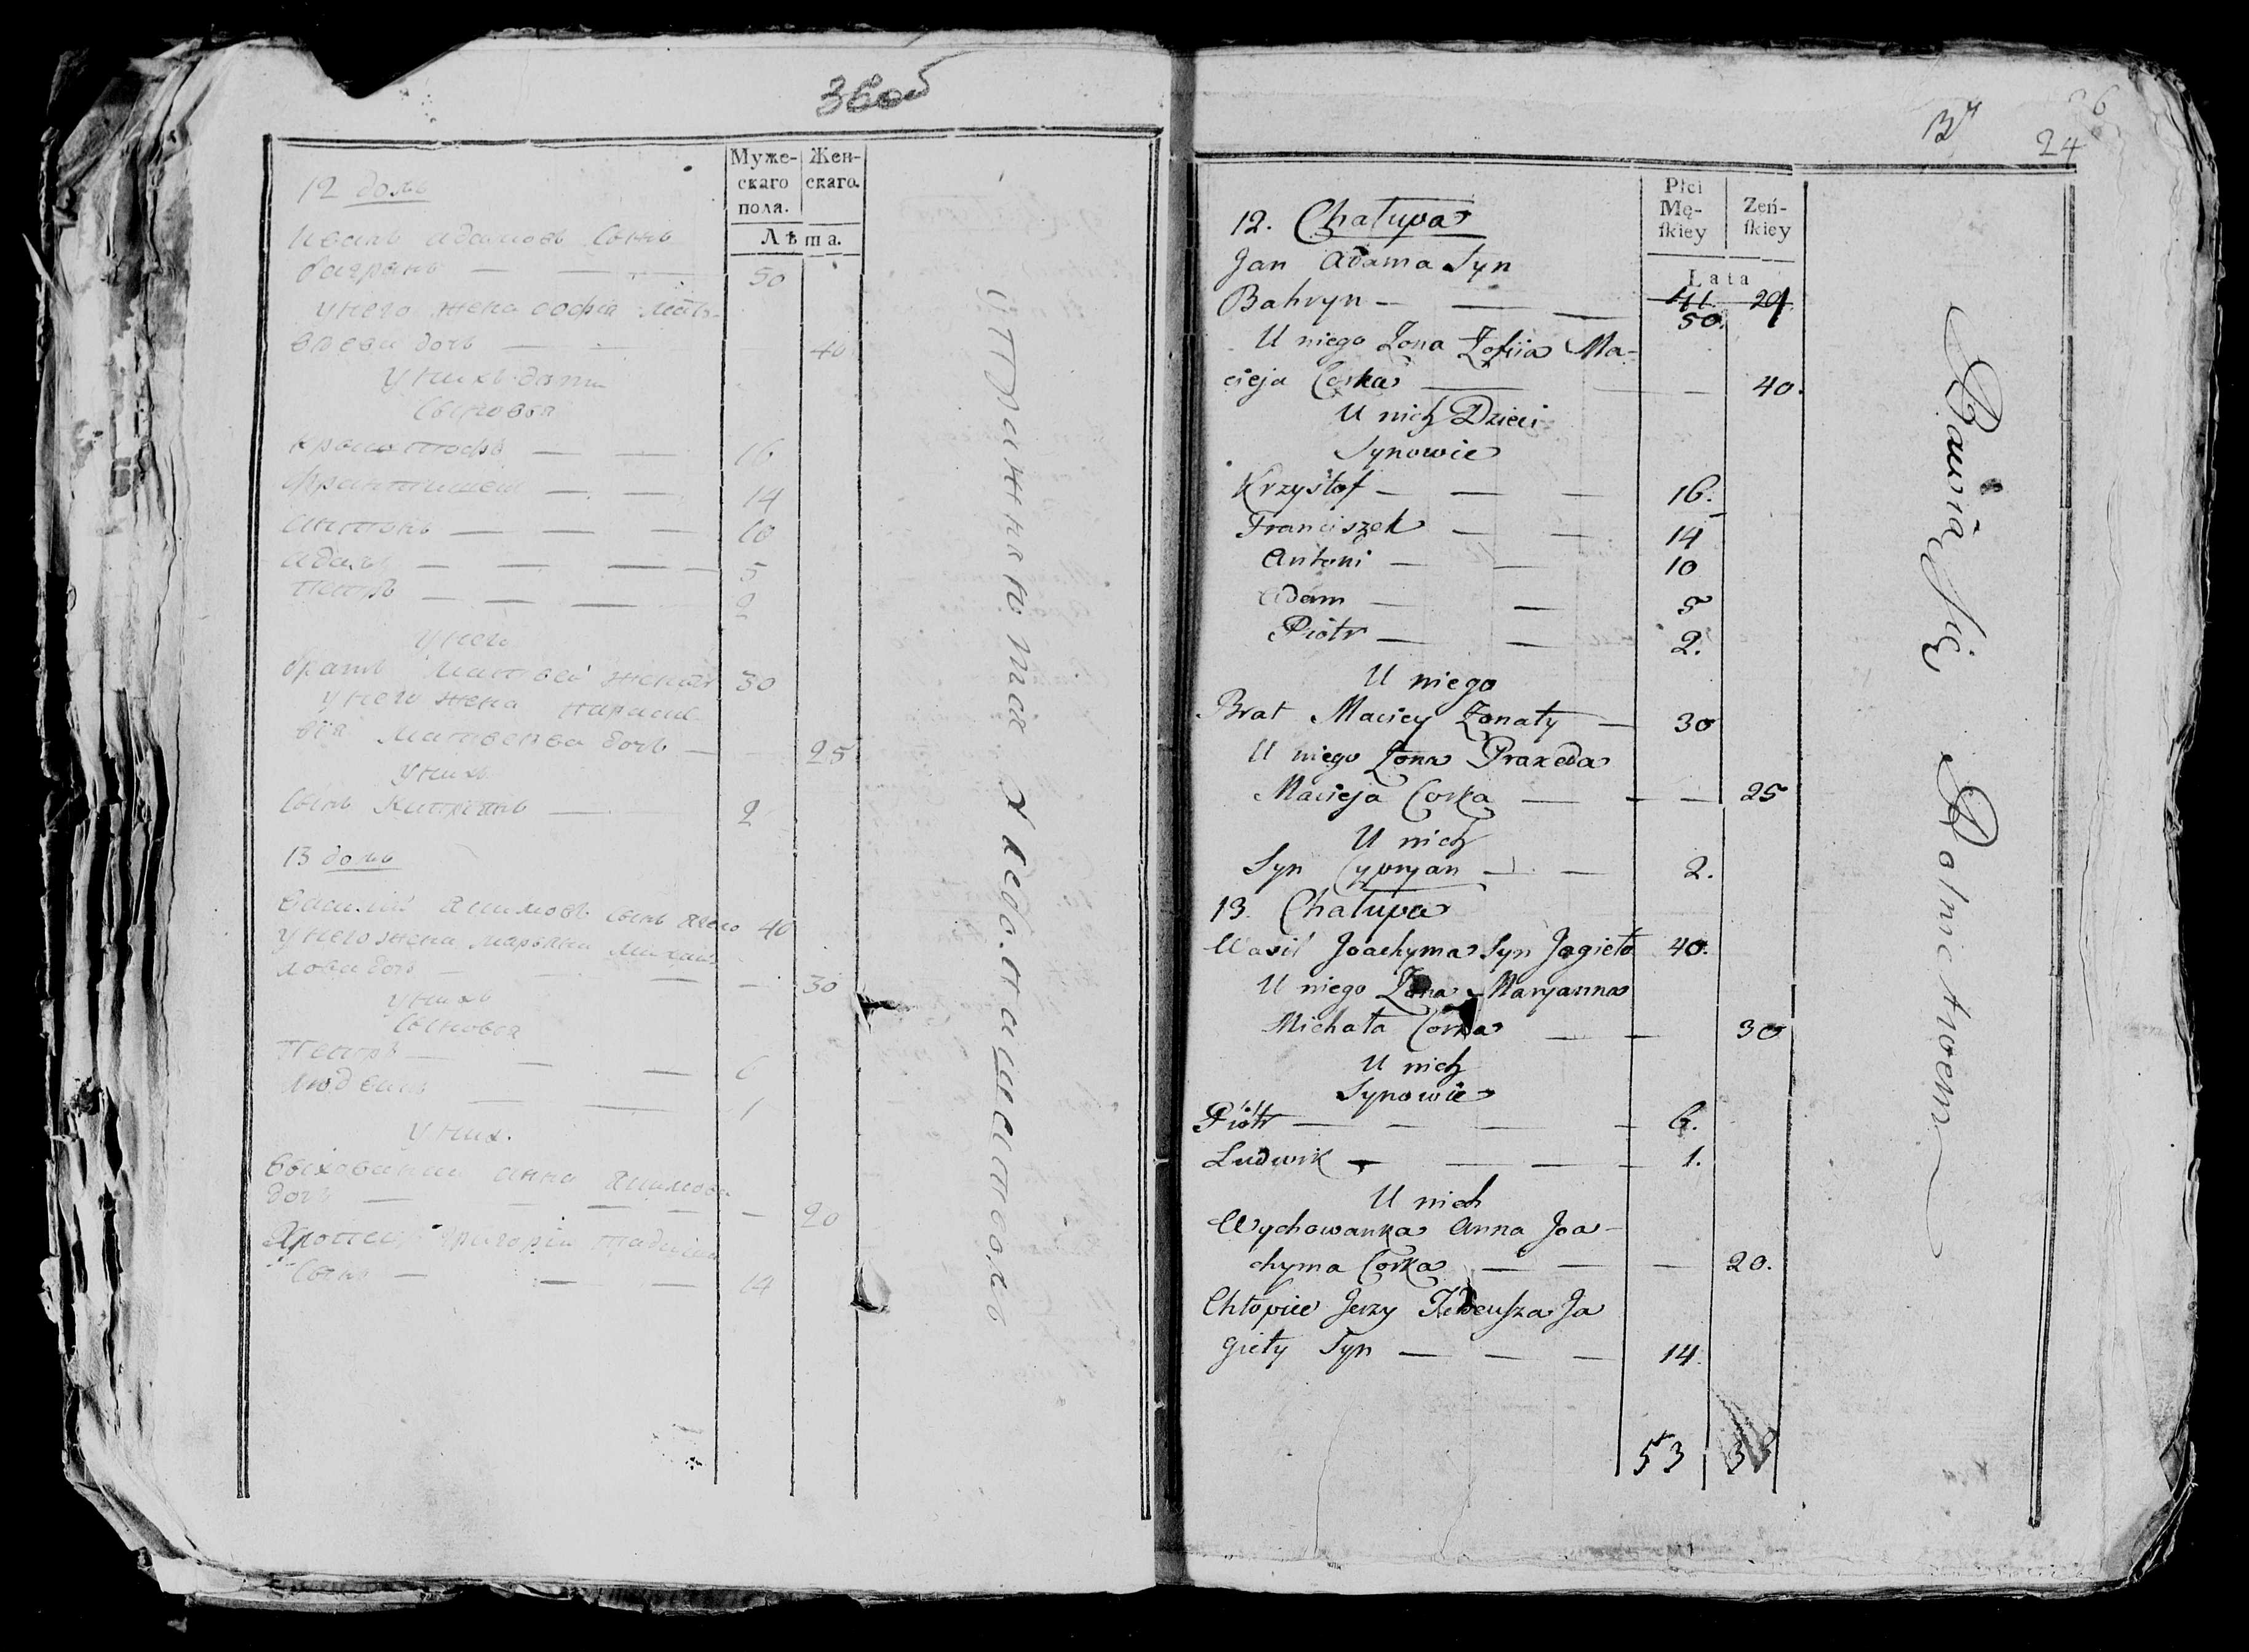 36 об
Муже-
скаго
пола.
Жен-
скаго.
Лѣта.
12 домъ
Иванъ Адамовъ сынъ
Багрынъ — — — 50
У него жена Софія Матъ-
вѣева дочь — — 40
У нихъ дѣти
Сыновья
Криштофъ — — 16
Францишекъ — — 14
Антонъ — — — 10
Адамъ — — — 5
Петръ — — — 2
У него
Братъ Матвей женатъ 30
У него жена Параске-
вія Матвеева дочь — 25
У нихъ
Сынъ Кипріянъ — 2
13 домъ
Василій Якимовъ сынъ Ягело 40
У него жена Марьяна Михай-
лова дочь — — — 30
У нихъ
Сыновья
Петръ — — — 6
Людвикъ — — 1
У них.
Выхованка Анна Якимова
дочь — — — — 20
сынъ — — — 14
упражняются хлебопашествомъ
37
24
12. Chałupa
Płci
Mę-
skiey
Żeń-
skiey
Lata
Jan Adama Syn
Bahryn — — — 41. 29.
50.
U niego Żona Zofiia Ma-
cieja Corka — — — 40.
U nich Dzieci
Synowie
Krzysztof — — — 16.
Franciszek — — 14
Antoni — — 10
Adam — — 5
Piotr — — 2.
U niego
Brat Maciey Żonaty — 30
U niego Żona Praxeda
Macieja Corka — — — 25
U nich
Syn Cypryan — — 2.
13. Chałupa
Wasil Joachyma Syn Jagieło 40.
U niego Żona Maryanna
Michała Corka — — 30
U nich
Synowie
Piotr — — — — 6.
Ludwik — — — — 1.
U nich
Wychowanka Anna Joa-
chyma Corka — — — 20.
Chłopiec Jerzy Tadeusza Ja
gieły Syn — — — 14.
53
Bawią się Rolnictwem